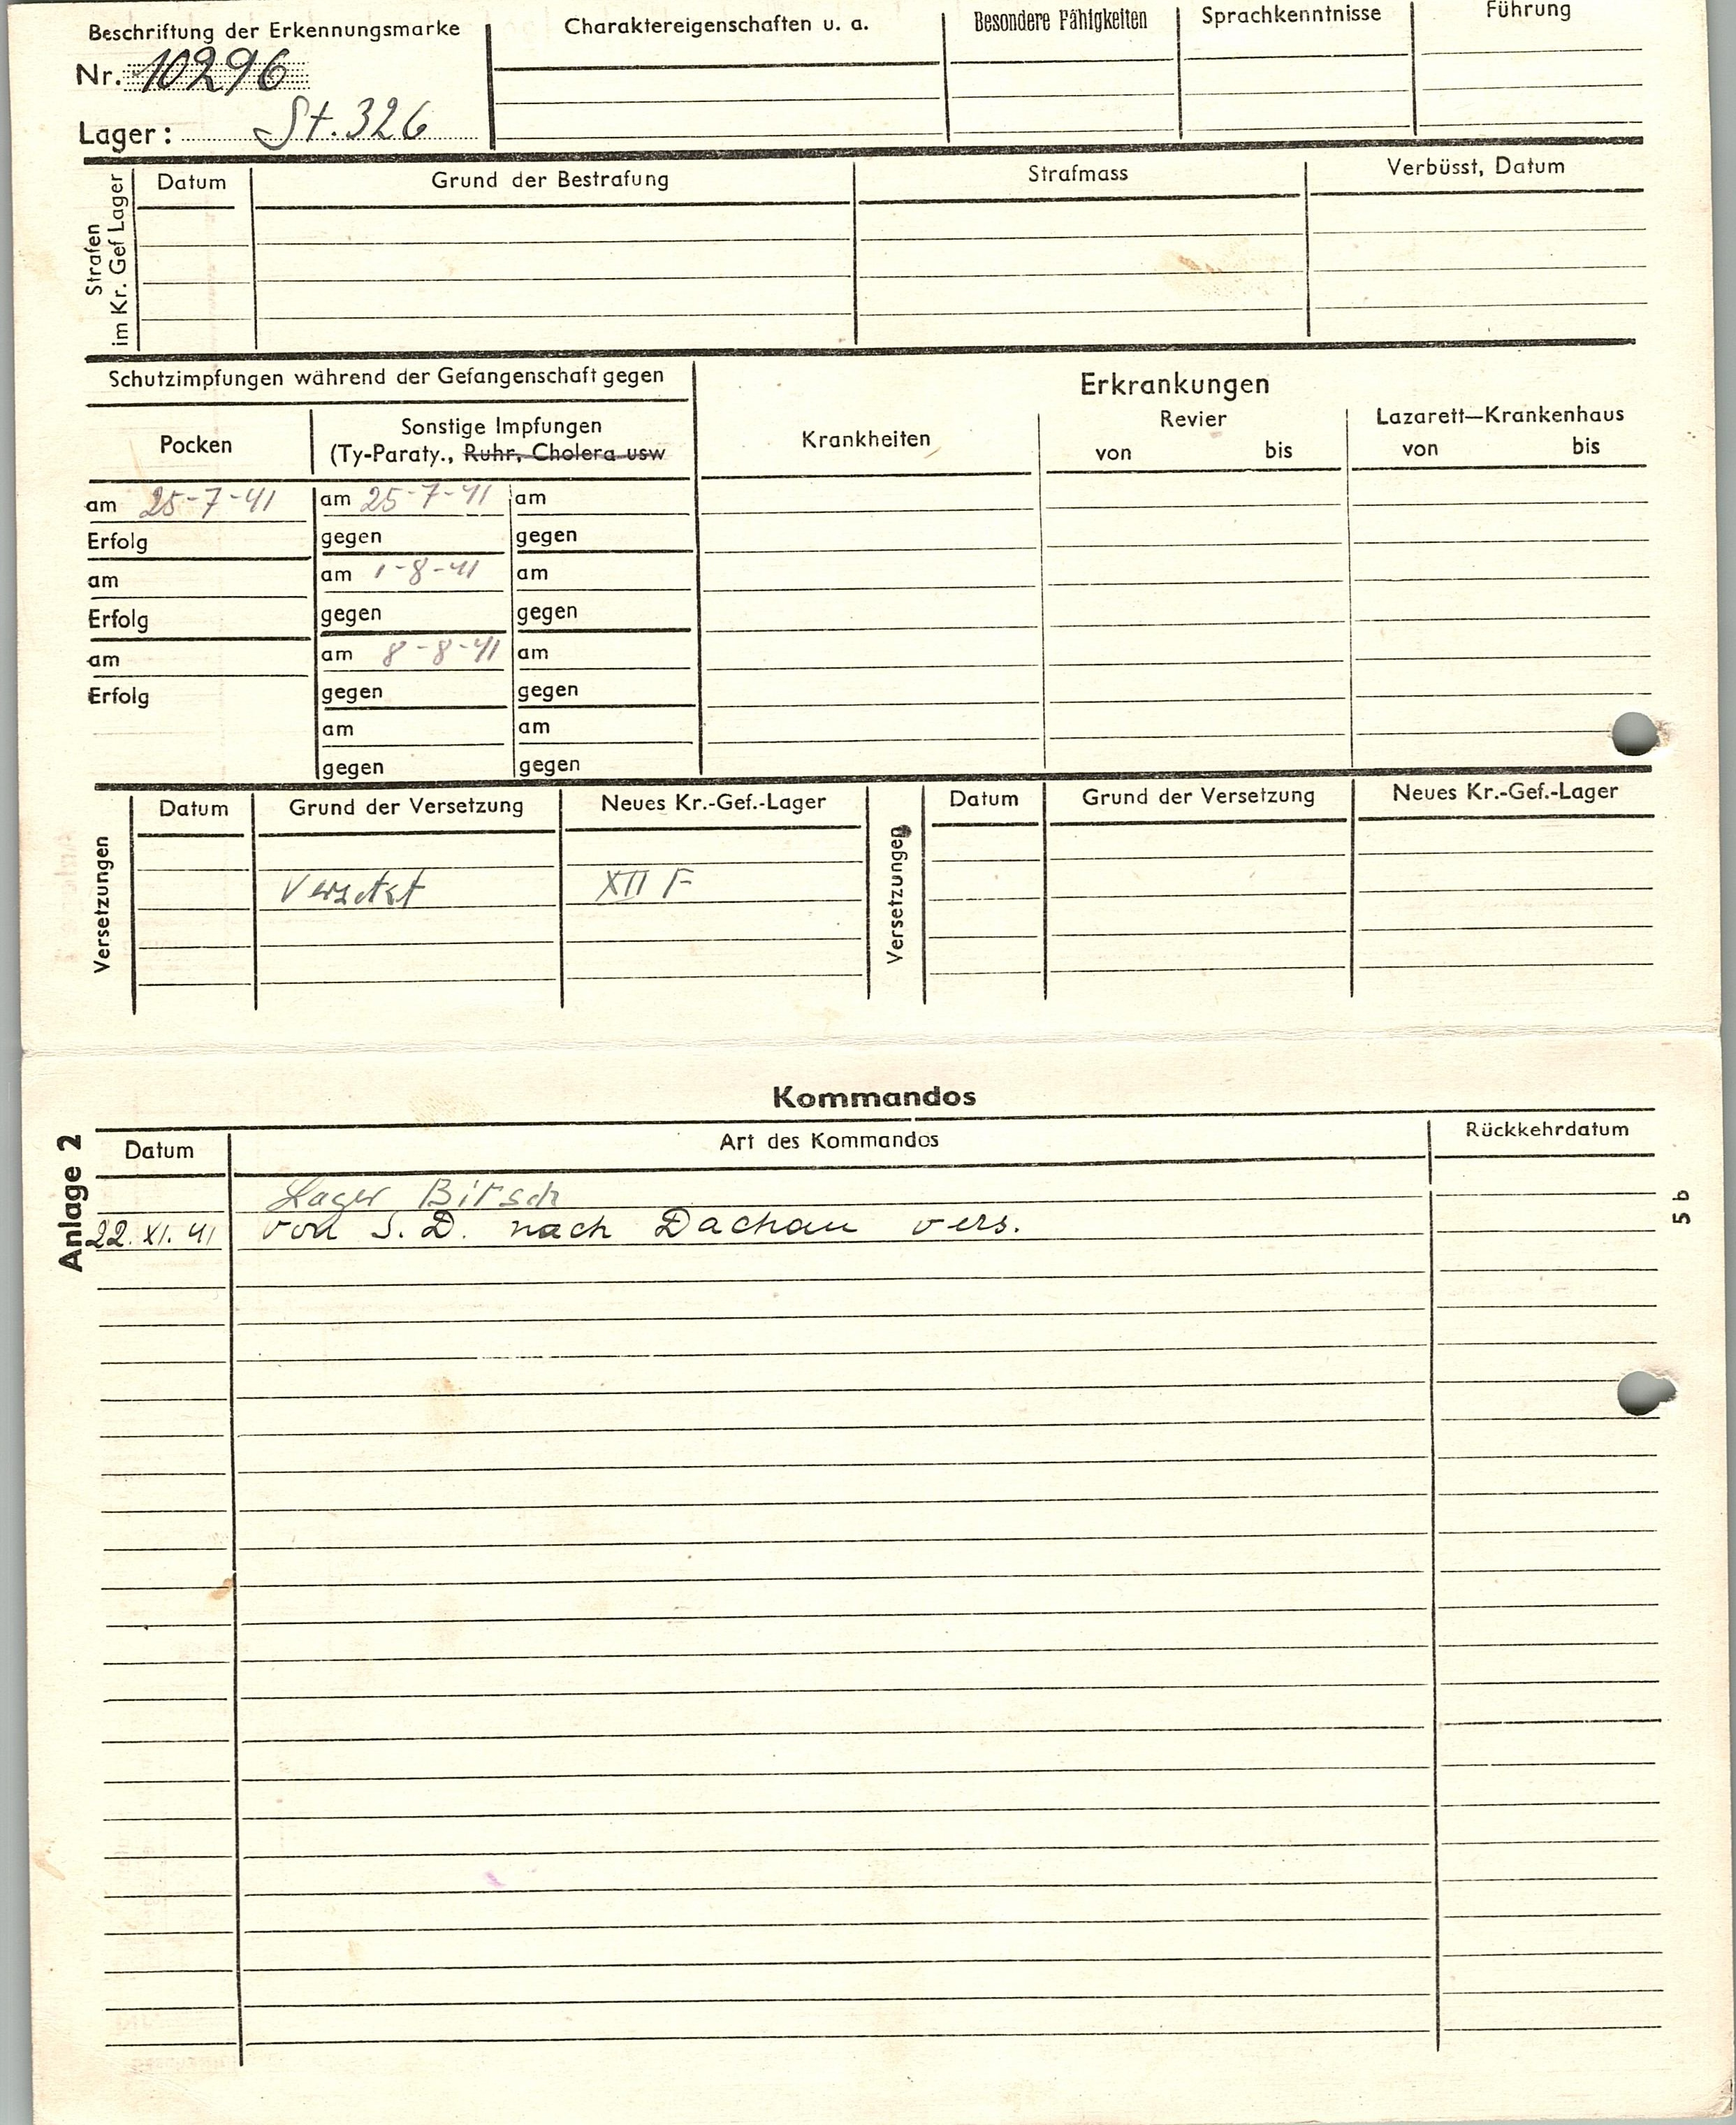 Beschriftung der Erkennungsmarke
Nr. 10296
Lager: St. 326
Charaktereigenschaften u. a.
Besondere Fähigkeiten
Sprachkenntnisse
Führung
Strafen
im Kr. Gef Lager
Datum
Grund der Bestrafung
Strafmass
Verbüsst, Datum
Schutzimpfungen während der Gefangenschaft gegen
Pocken
Sonstige Impfungen
(Ty-Paraty., Ruhr, Cholera usw
am 25-7-41 am 25-7-41 am
Erfolg gegen gegen
am am 1-8-41 am
Erfolg gegen gegen
am am 8-8-41 am
Erfolg gegen gegen
am am
gegen gegen
Erkrankungen
Krankheiten
Revier
von bis
Lazarett—Krankenhaus
von bis
Versetzungen
Datum Grund der Versetzung Neues Kr.-Gef.-Lager
Versetzt XII F
Versetzungen
Datum Grund der Versetzung Neues Kr.-Gef.-Lager
Anlage 2
Kommandos
Datum Art des Kommandos Rückkehrdatum
Lager Bitsch
22. XI. 41 von S. D. nach Dachau vers.
5 b